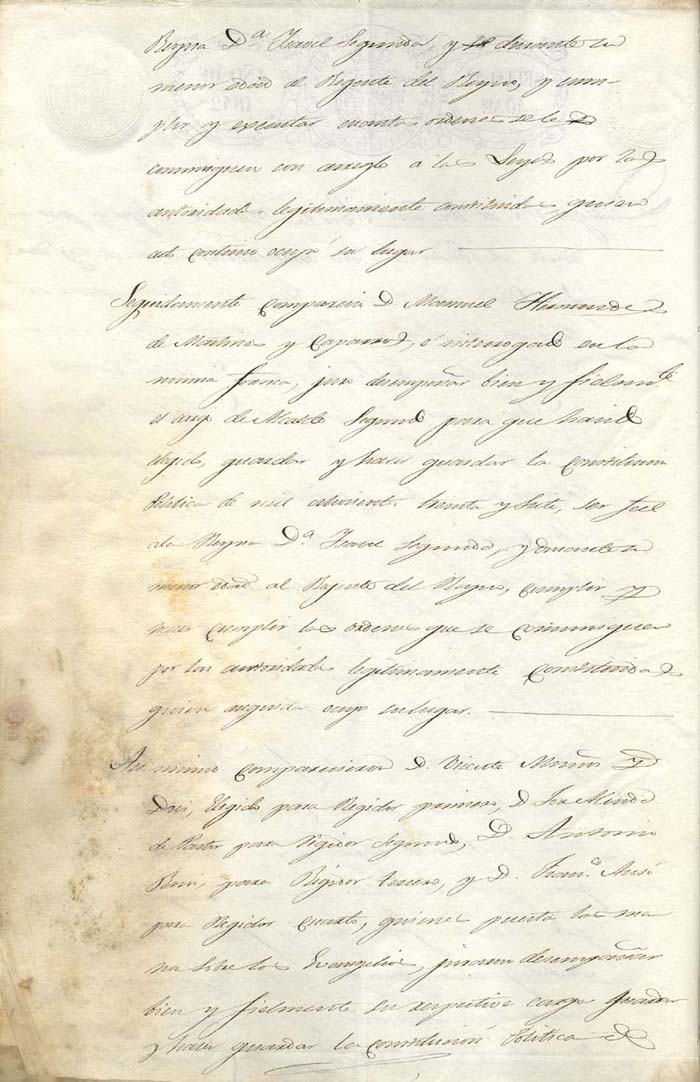 Reyna D.ª Isavel Segunda, y durante su
menor edad al Regente del Reyno, y cum-
plir y executar cuantas ordenes se le
comuniquen con arreglo a las Leyes por las
autoridades legitimamente constituidas, quien
acto continuo ocupó su lugar.
Seguidamente compareció D. Manuel Hernandez
de Martinez y Caparros, é interrogado en la
misma forma, juró desempeñar bien y fielmte
el cargo de Alcalde Segundo para que ha sido
elegido, guardar y hacer guardar la Constitucion
Politica de mil ochocientos treinta y siete, ser fiel
a la Reyna D.ª Isavel Segunda, y durante su
menor edad al Regente del Reyno, cumplir y
hacer cumplir las ordenes que se comuniquen
por las autoridades legitimamente constituidas
quien enseguida ocupó su lugar.
Asi mismo comparecieron D. Vicente
elegido para Regidor primero, D.
de Pastor para Regidor Segundo, D. Antonio
para Regidor tercero, y D. Fran.co
para Regidor cuarto, quienes puesta las ma
nos sobre los Evangelios, juraron desempeñar
bien y fielmente su respectivo cargo guardar
y hacer guardar la constitucion Politica de